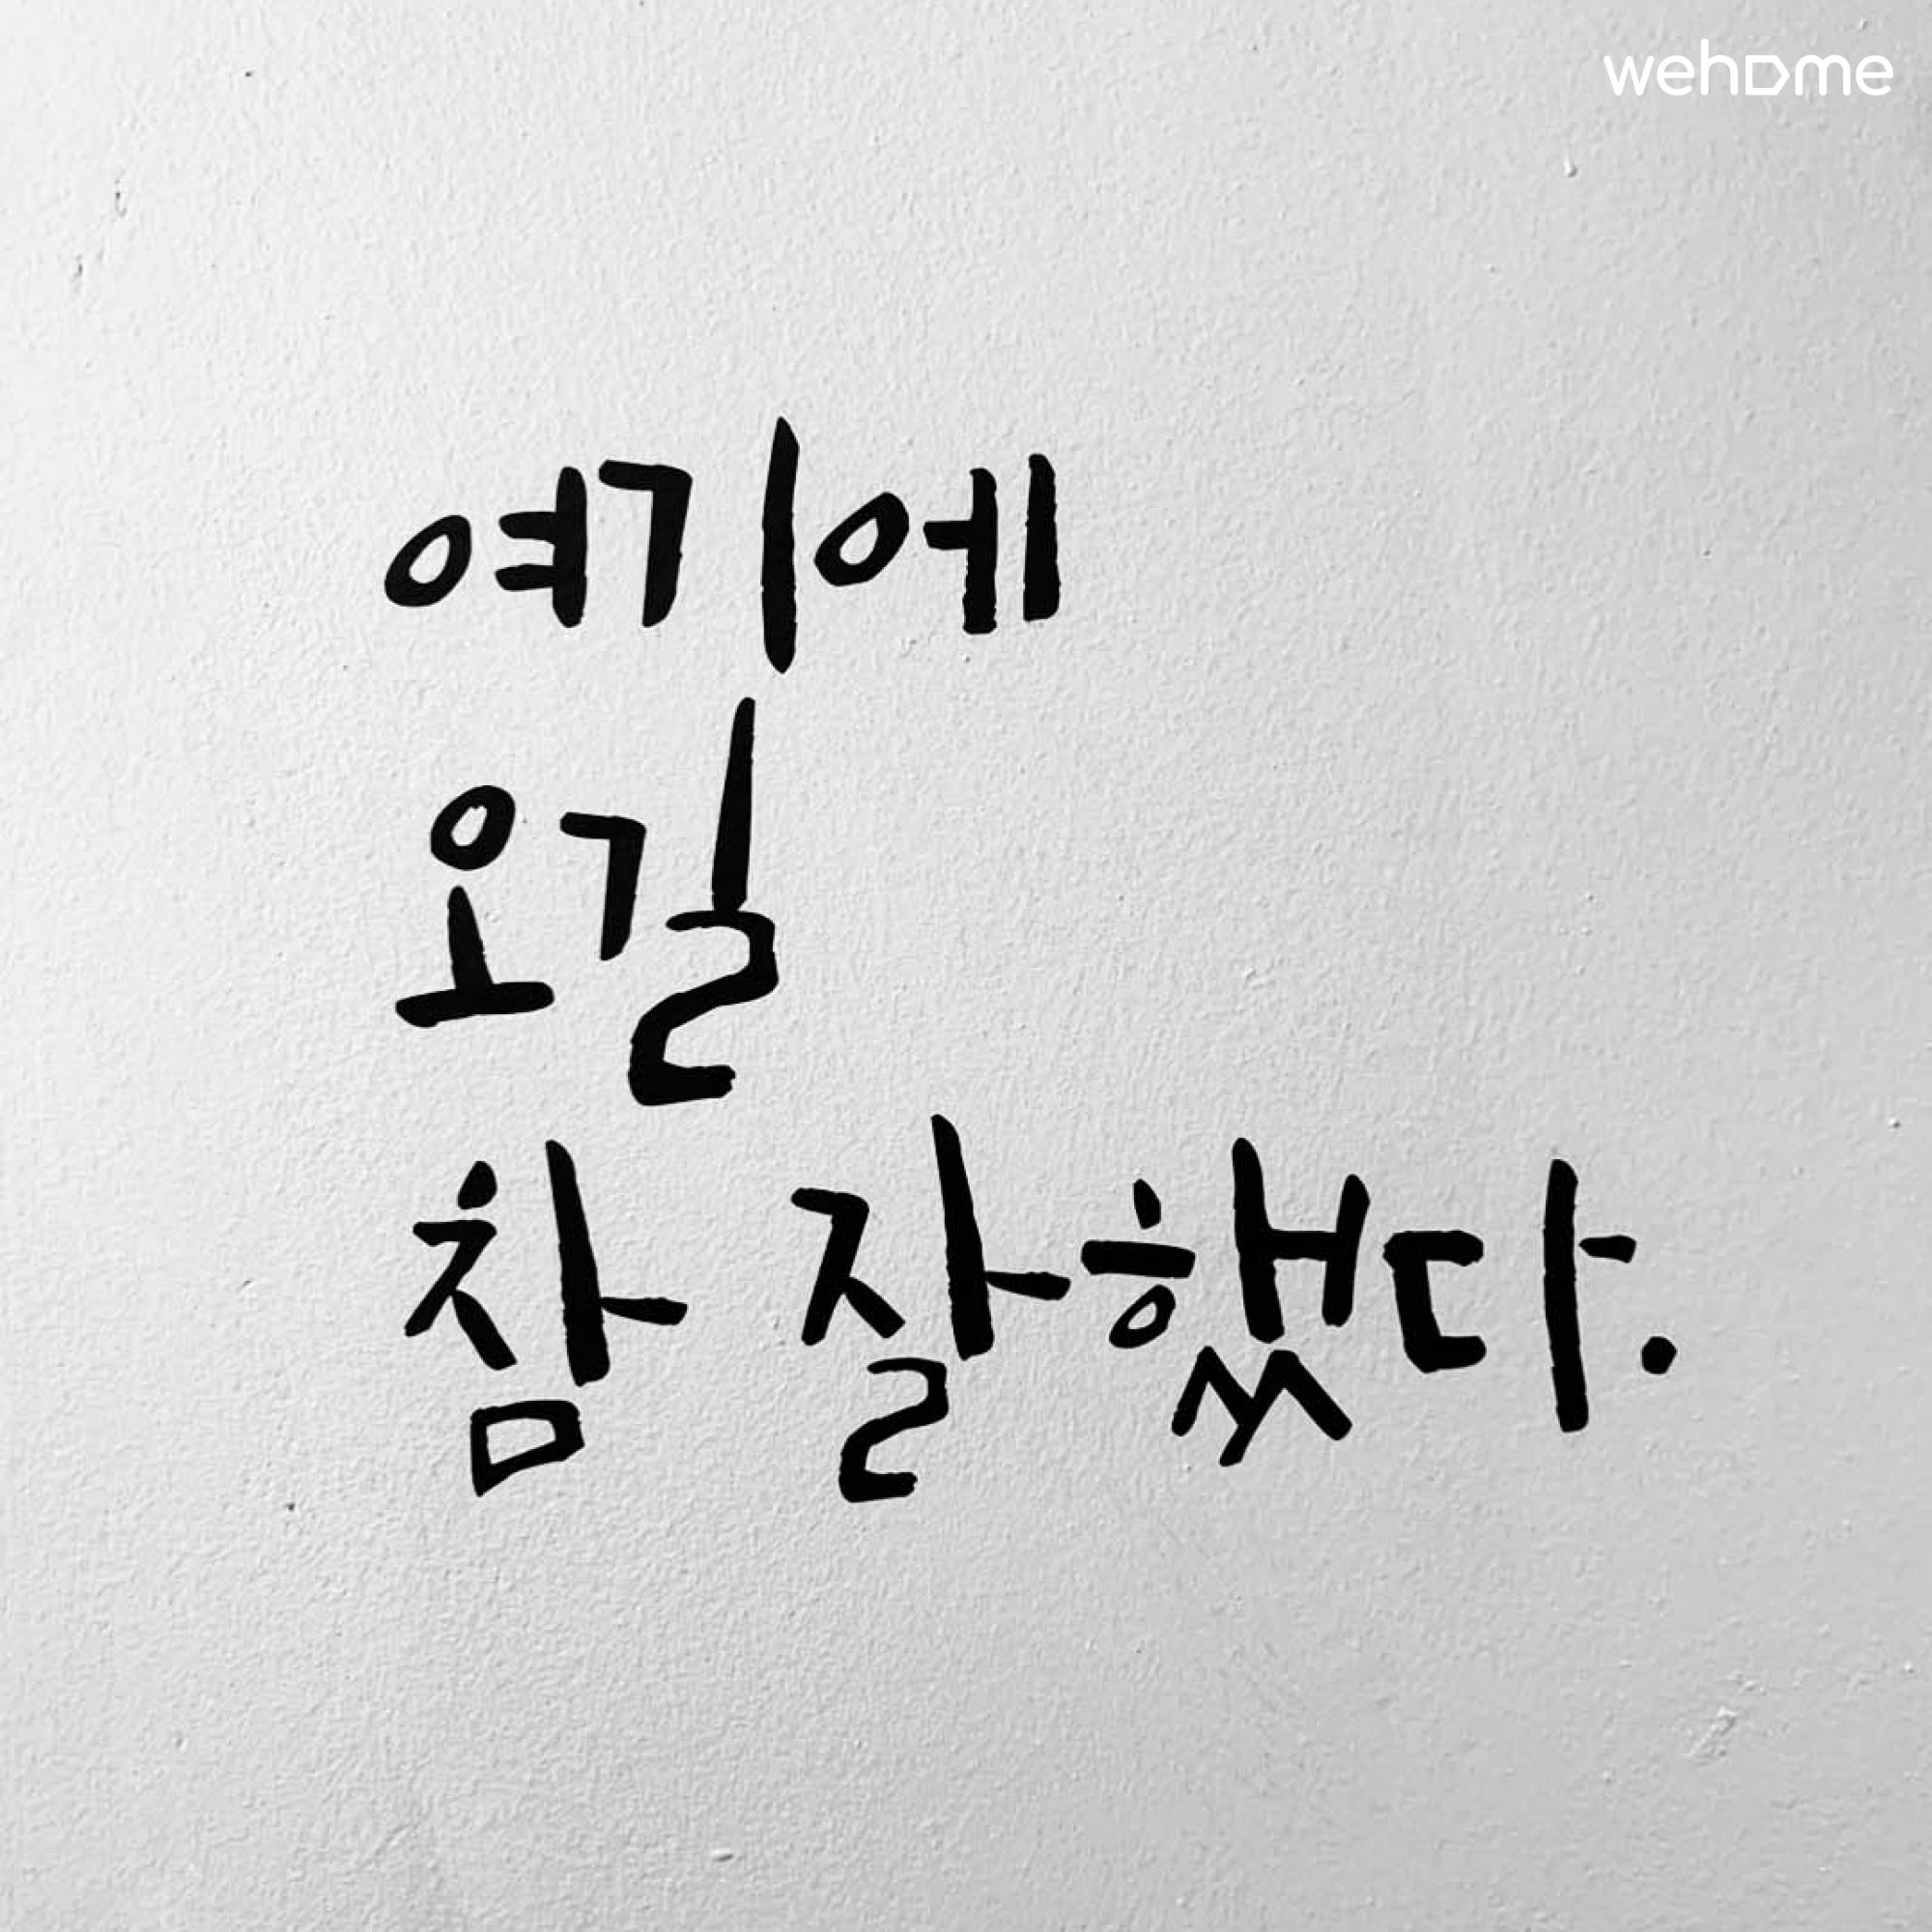 wehome
여기에
오길
참 잘했다.